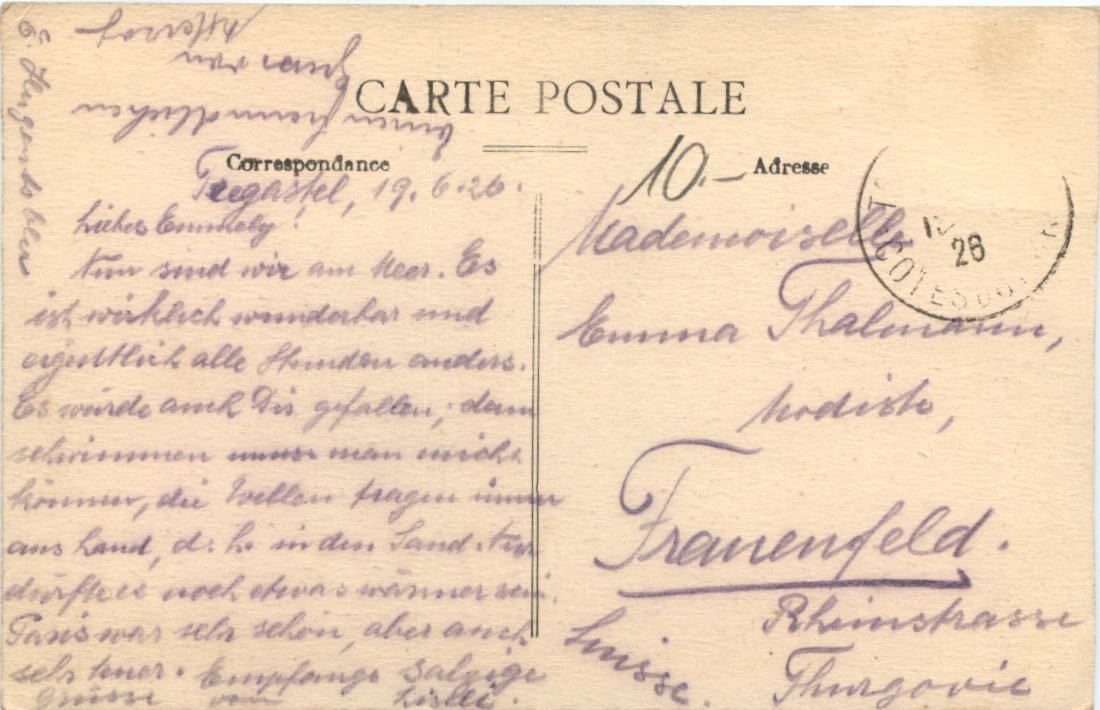 CARTE POSTALE
Correspondance
Adresse
10.-
Tregastel, 19.6.26.
Liebes Emmely!
Nun sind wir am Meer. Es
ist wirklich wunderbar und
eigentlich alle Stunden anders.
Es würde auch Dir gefallen, denn
schwimmen muss man nicht
können, die Wellen tragen immer
ans Land, d. h. in den Sand. Nur
dürfte es noch etwas wärmer sein.
Paris war sehr schön, aber auch
sehr teuer. Empfange salzige
Grüsse von Lislei.
Einen freundlichen
Gruss von
Mademoiselle
Emma Thalmann,
Modiste,
Frauenfeld.
Rheinstrasse
Suisse. Thurgovie
26
COTES DU N